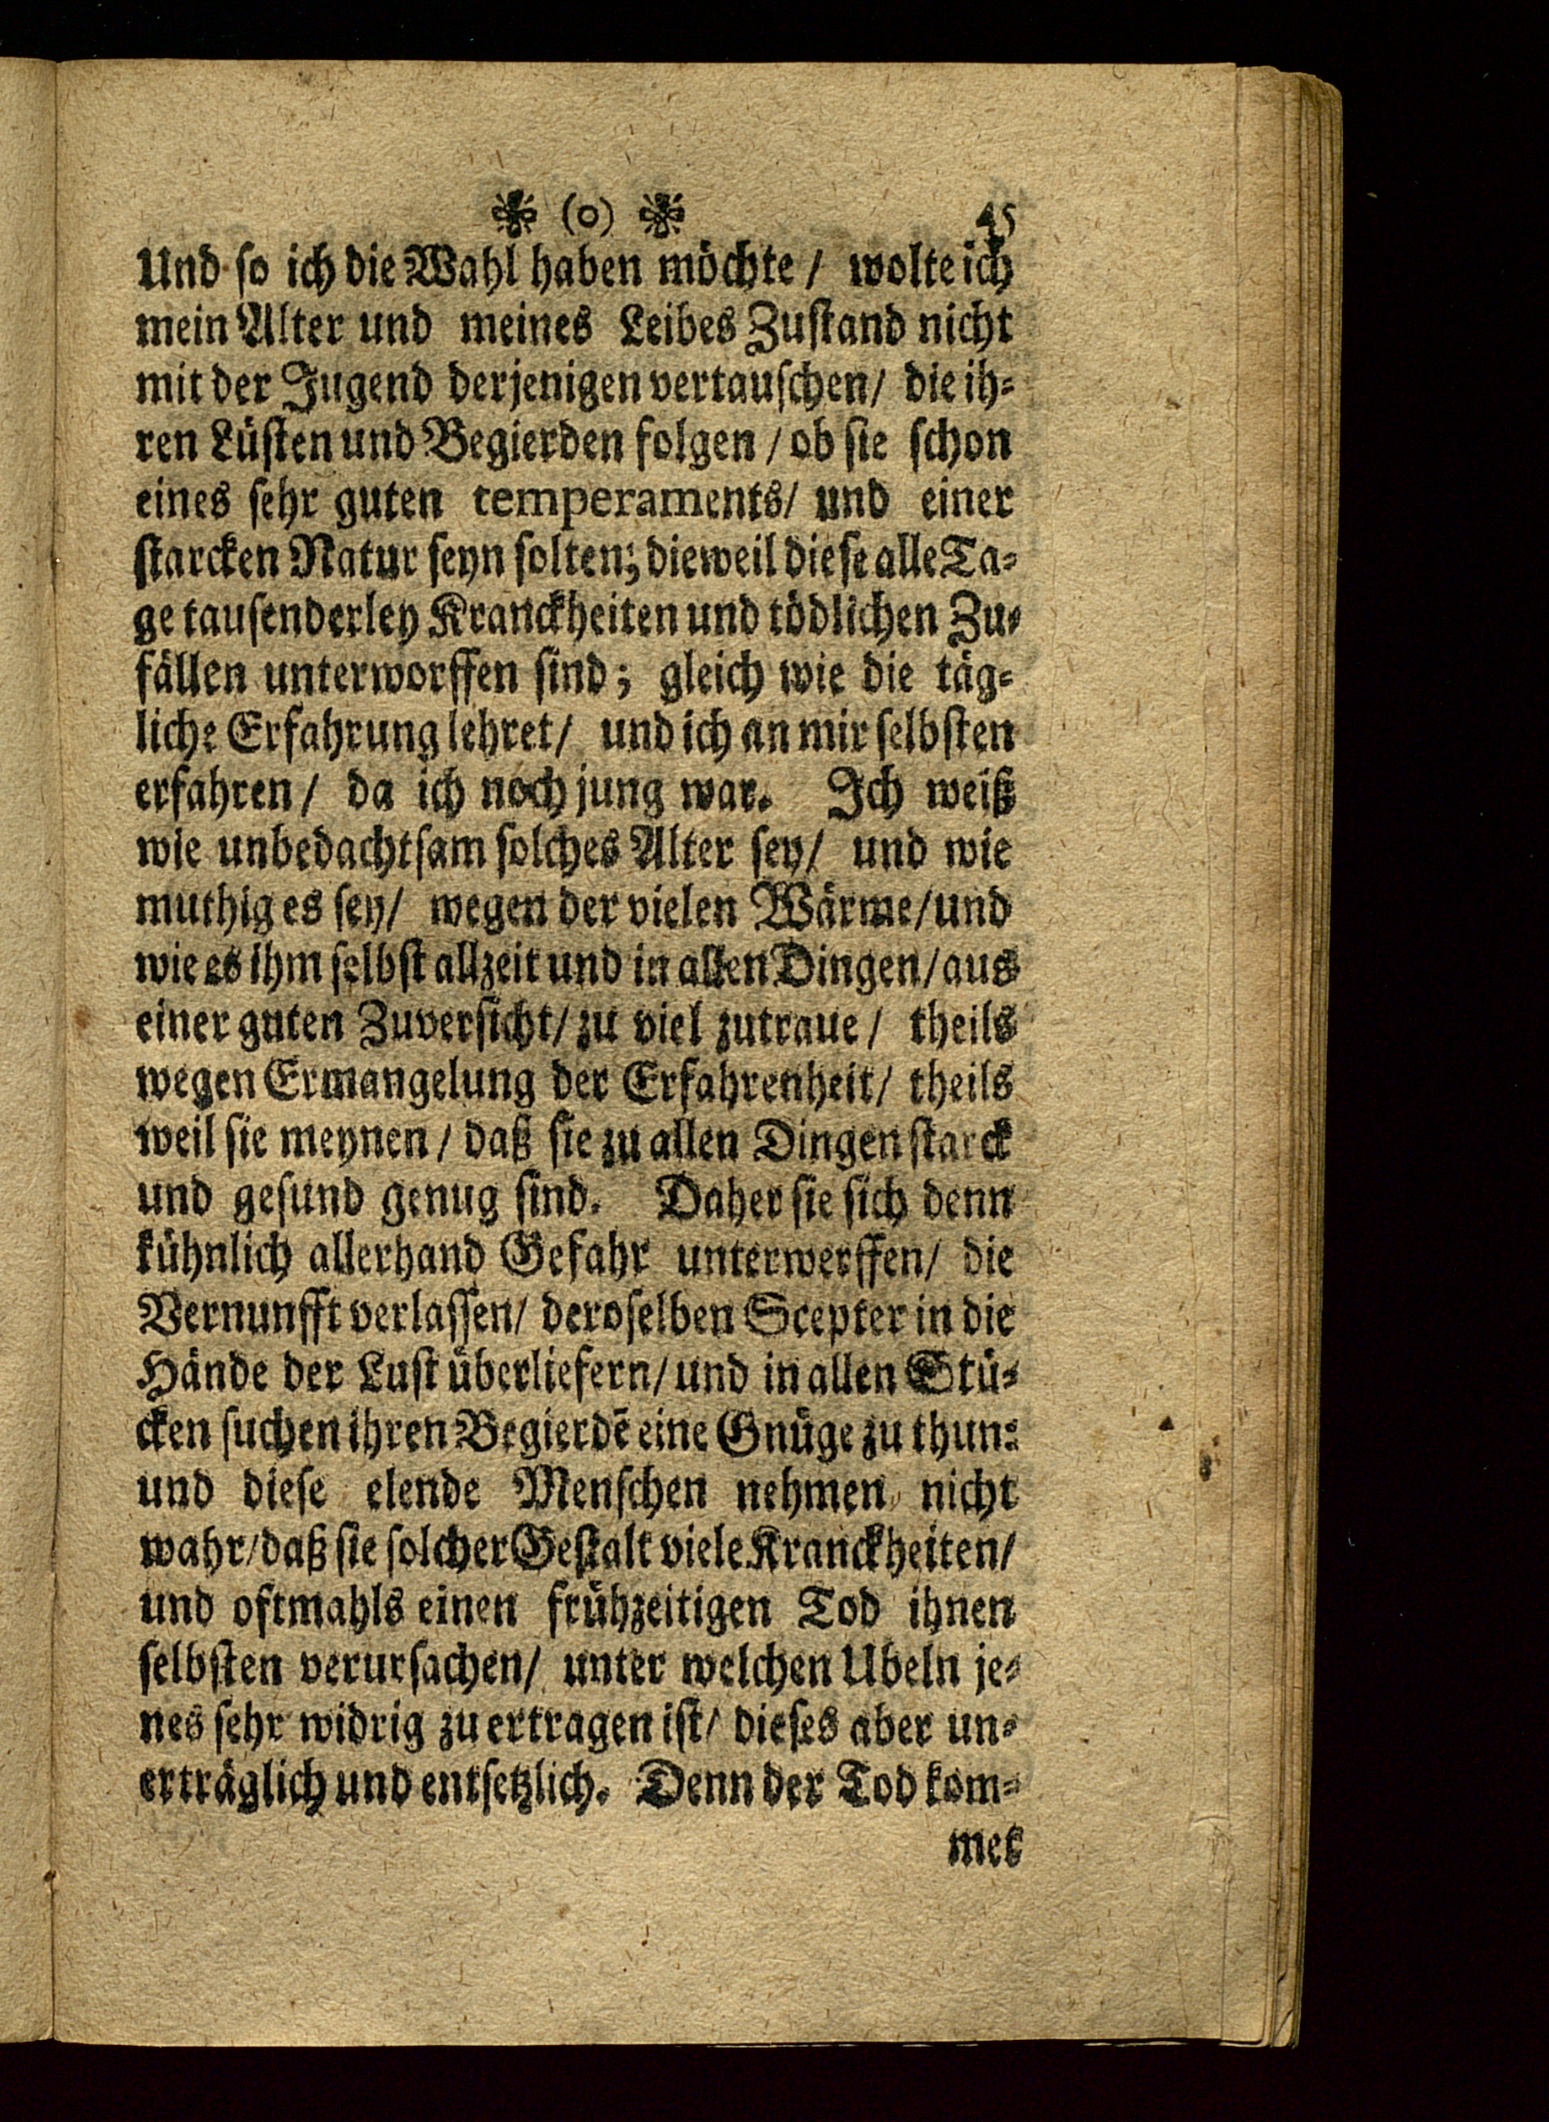 (o) 45
Und so ich die Wahl haben möchte / wolte ich
mein Alter und meines Leibes Zustand nicht
mit der Jugend derjenigen vertauschen / die ih-
ren Lüsten und Begierden folgen / ob sie schon
eines sehr guten temperaments / und einer
starcken Natur seyn solten; dieweil diese alle Ta-
ge tausenderley Kranckheiten und tödlichen Zu-
fällen unterworffen sind; gleich wie die täg-
liche Erfahrung lehret / und ich an mir selbsten
erfahren / da ich noch jung war. Ich weiß
wie unbedachtsam solches Alter sey / und wie
muthig es sey / wegen der vielen Wärme / und
wie es ihm selbst allzeit und in allen Dingen / aus
einer guten Zuversicht / zu viel zutraue / theils
wegen Ermangelung der Erfahrenheit / theils
weil sie meynen / daß sie zu allen Dingen starck
und gesund genug sind. Daher sie sich denn
kühnlich allerhand Gefahr unterwerffen / die
Vernunfft verlassen / deroselben Scepter in die
Hände der Lust überliefern / und in allen Stü-
cken suchen ihren Begierdē eine Gnüge zu thun:
und diese elende Menschen nehmen nicht
wahr / daß sie solcher Gestalt viele Kranckheiten /
und oftmahls einen frühzeitigen Tod ihnen
selbsten verursachen / unter welchen Ubeln je-
nes sehr widrig zu ertragen ist / dieses aber un-
erträglich und entsetzlich. Denn der Tod kom-
met